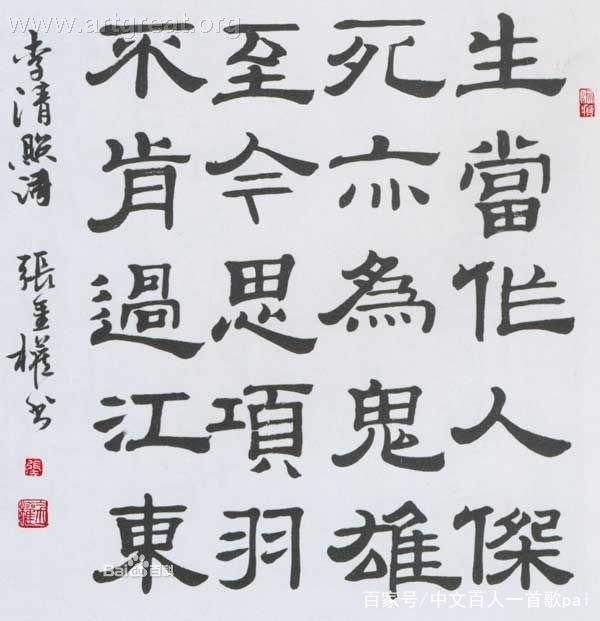 www.artgreat.org
生當作人傑
死亦為鬼雄
至今思項羽
不肯過江東
李清照詩
張權书
Bai百科
百家号/中文百人一首歌pai